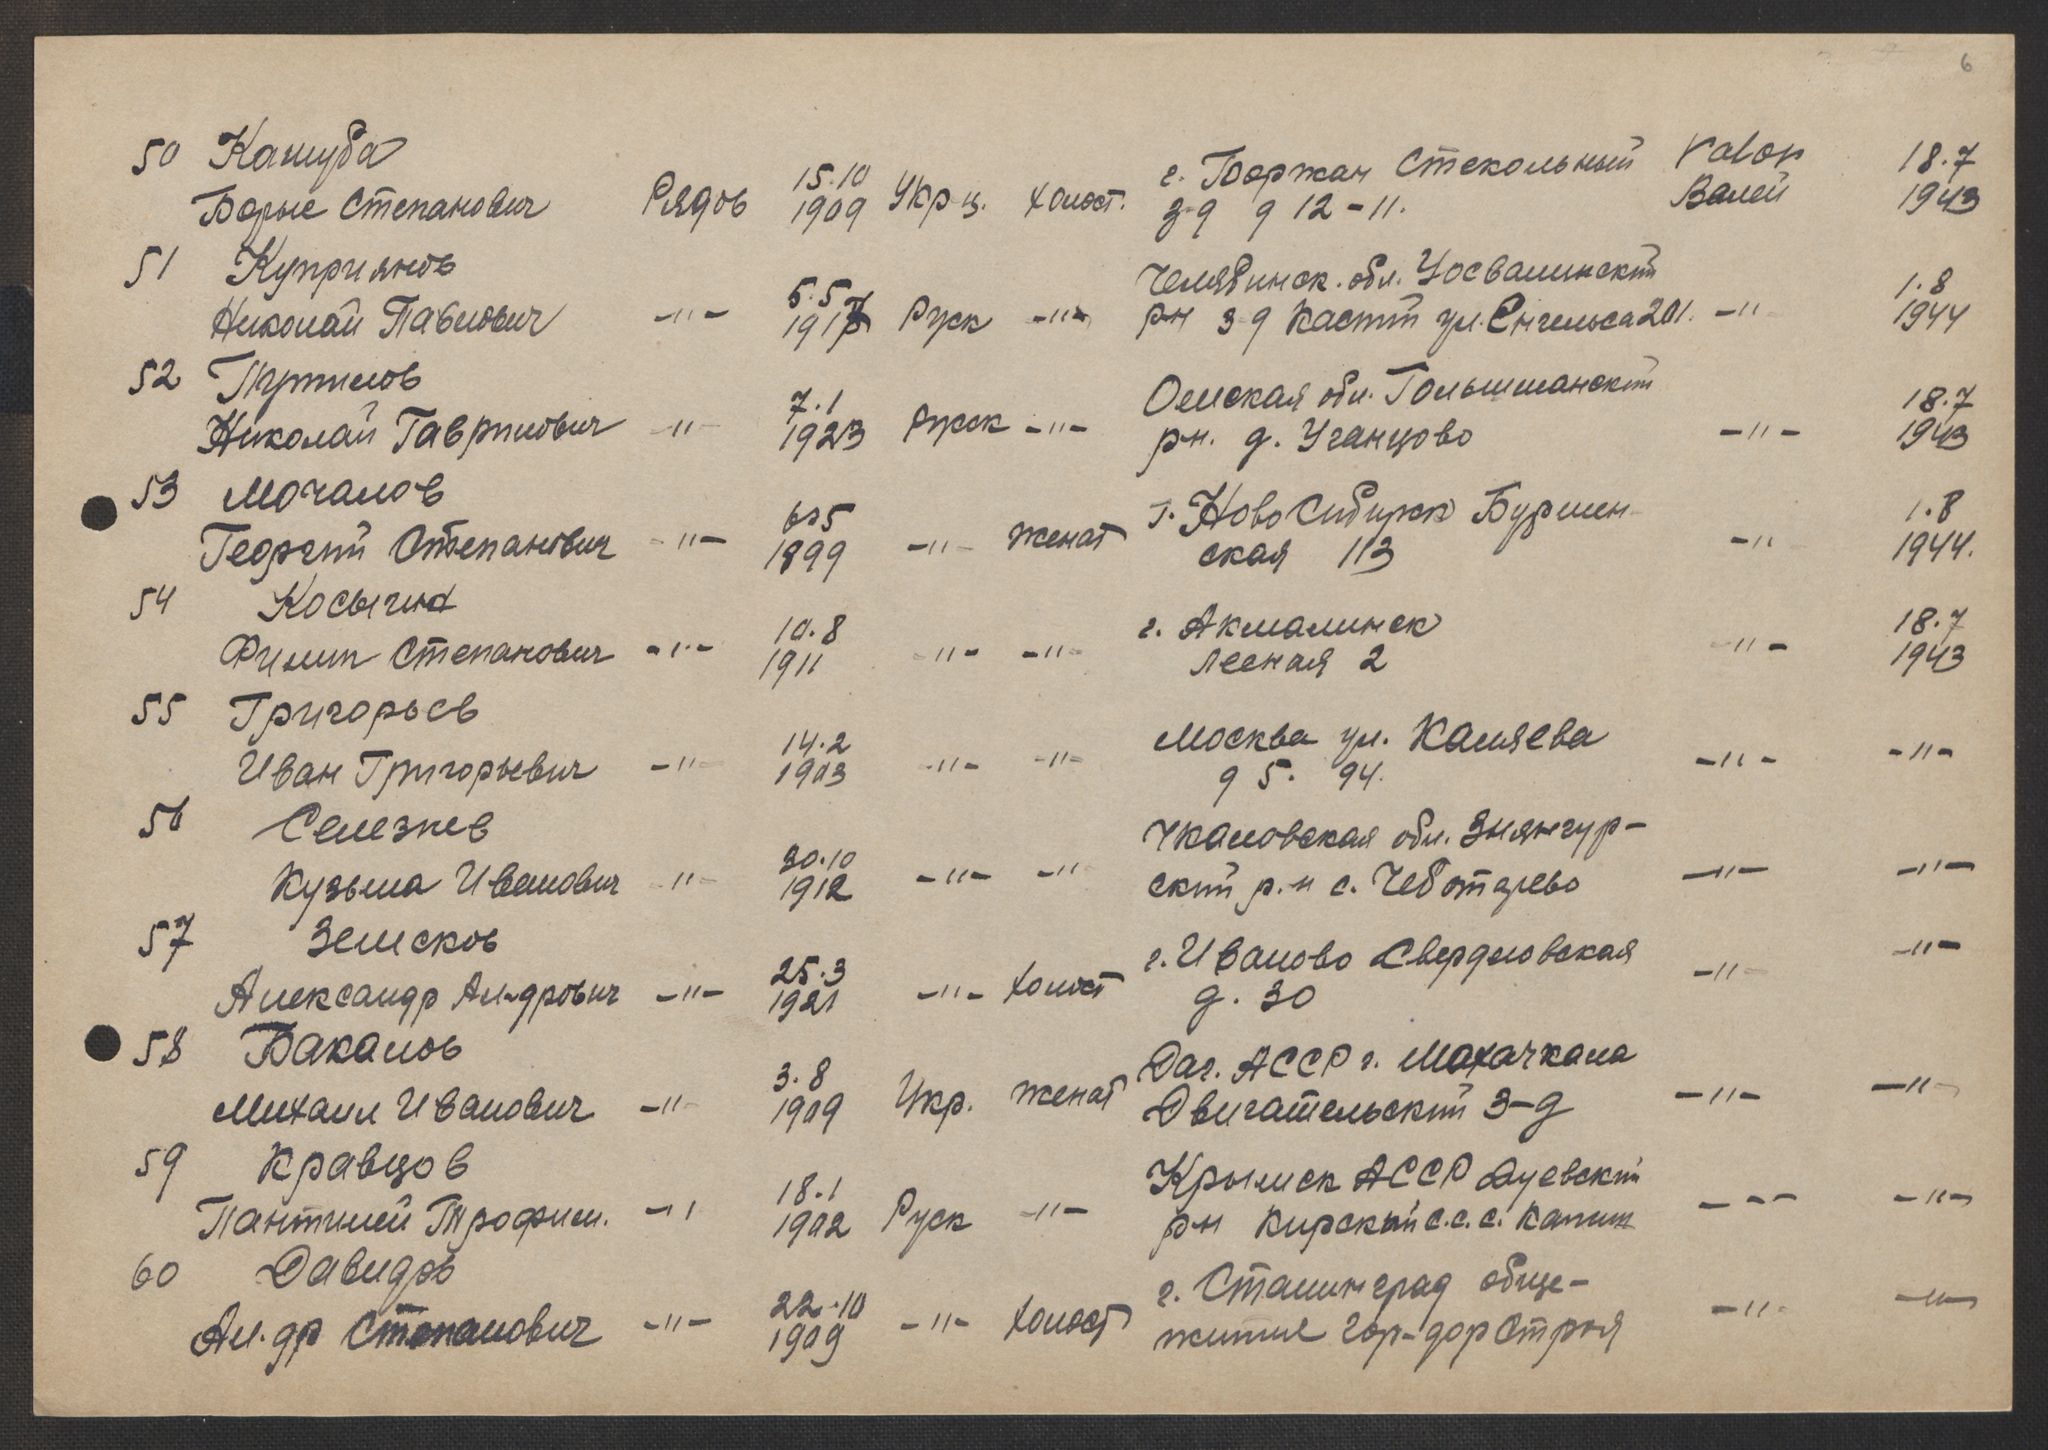 6
50 Кашуба
Борис Степанович Рядов 15.10 1909 Укр-ц. холост. г. Боржан Стекольный з-д д 12-11. Valon Валей 18.7 1943
51 Куприянов
Николай Павлович -"- 5.5 1917 Руск -"- Челябинск. обл. Уфсвалинский рн з-д Каспий ул. Енгельса 201. -"- 1.8 1944
52 Туртилов
Николай Гаврилович -"- 7.1 1923 Руск -"- Омская обл. Голышманский рн. д. Усанцово -"- 18.7 1943
53 Мочалов
Георгий Степанович -"- 1899 -"- женат г. Ново Сибирск Бурлин-ская 113 -"- 1.8 1944.
54 Косыгин
Филип Степанович -"- 10.8 1911 -"- -"- г. Акмалинск Лесная 2 -"- 18.7 1943
55 Григорьев
Иван Григорьевич -"- 14.2 1903 -"- -"- Москва ул. Каляева д 5. 94. -"- -"-
56 Селезнев
Кузьма Иванович -"- 30.10 1912 -"- -"- Чкаловская обл. Зиянчур-ский р.н с. Чеботарево -"- -"-
57 Земсков
Александр Ал-дрович -"- 25.3 1921 -"- холост г. Иваново Свердловская д. 30 -"- -"-
58 Бакалов
Михаил Иванович -"- 3.8 1909 Укр. женат Даг. АССР г. Махачкала Двигательский З-д -"- -"-
59 Кравцов
Пантилей Трофим. -"- 18.1 1902 Руск -"- Крымск АССР рн Кирский с.с. с. -"- -"-
60 Давидов
Ал.др Степанович -"- 22.10 1909 -"- холост г. Сталинград обще-житие Гор-дорстроя -"- -"-